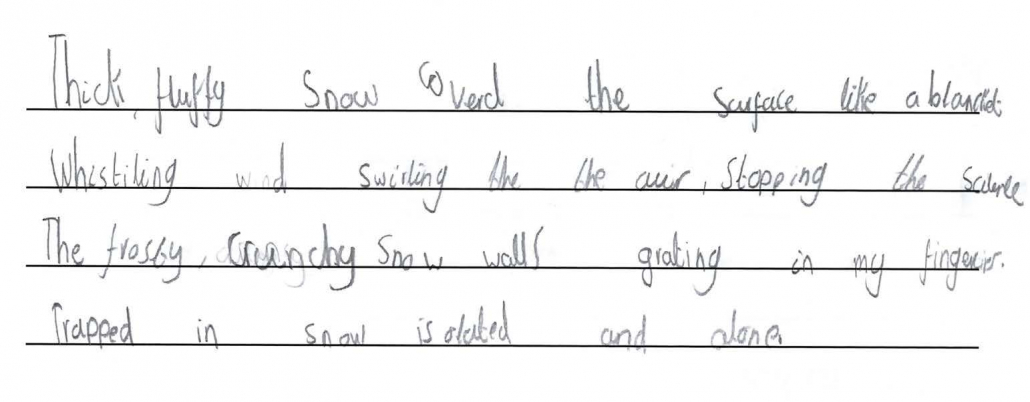 Thick, fluffy Snow Coverd the Surface like a blancket
Whistiling wind swirling the the auir, Stopping the
The frosty, Crunchy Snow walls grating in my
Trapped in snow isolated and alone.